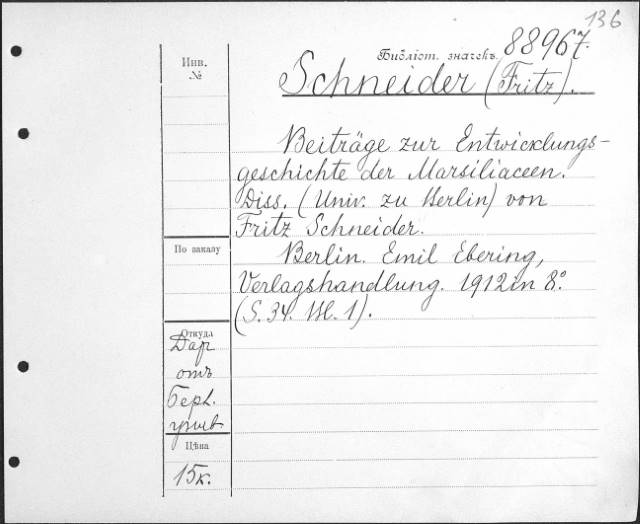 136
Библіот. значекъ 88967.
Schneider (Fritz).
Инв. №
Beiträge zur Entwicklungs-
geschichte der Marsiliaceen.
Diss. (Univ. zu Berlin) von
Fritz Schneider.
По заказу
Berlin. Emil Ebering,
Verlagshandlung. 1912 in 8º.
(S. 34. Bl. 1).
Откуда
Дар
отъ
Берл.
унив.
Цѣна
15к.